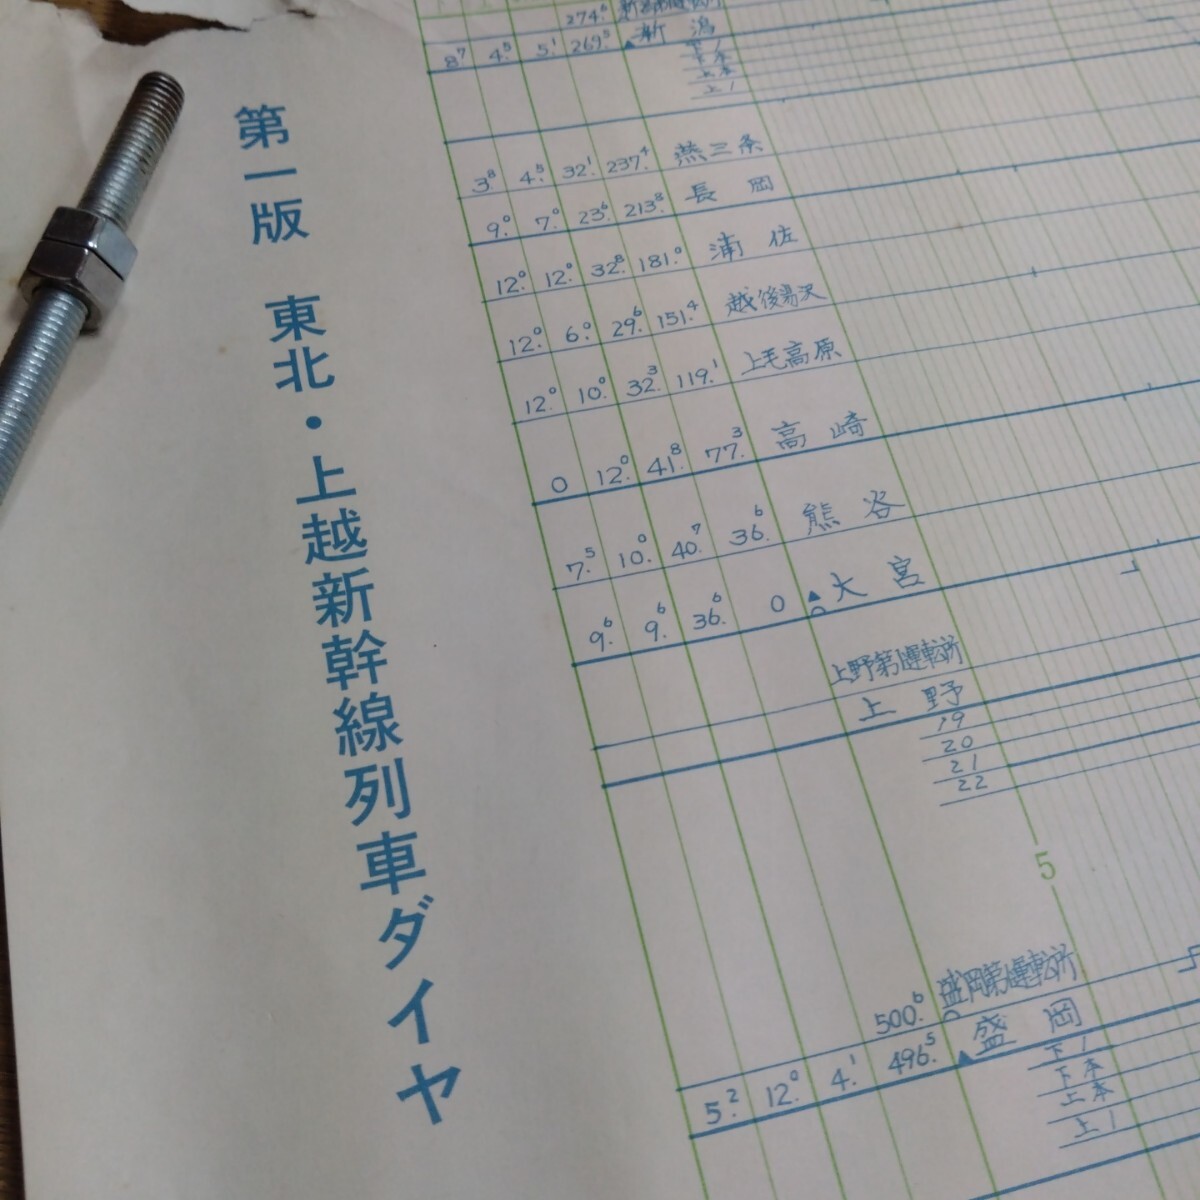 第一版 東北・上越新幹線列車ダイヤ
274.6
8.7 4.5 5.1 269.5 新潟
下1
下本
上本
上1
3.8 4.5 32.1 237.4 燕三条
9.0 7.0 23.6 213.8 長岡
12.0 12.0 32.8 181.0 浦佐
12.0 6.0 29.6 151.4 越後湯沢
12.0 10.0 32.3 119.1 上毛高原
0 12.0 41.8 77.3 高崎
7.5 10.0 40.7 36.6 熊谷
9.6 9.6 36.6 0 大宮
上野第1運転所
上野
19
20
21
22
5
500.6 盛岡第1運転所
5.2 12.0 4.1 496.5 盛岡
下1
下本
上本
上1